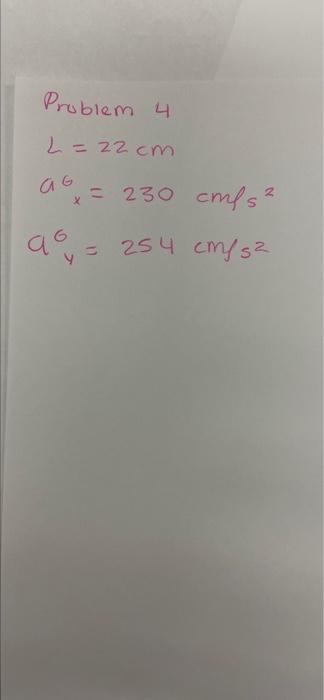 Problem 4
L = 22 cm
a^G_x = 230 cm/s²
a^G_y = 254 cm/s2